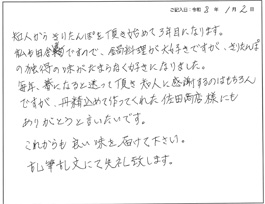 ご記入日：令和3年1月2日
知人からきりたんぽを頂き始めて3年目になります。
私も田舎ですので、郷土料理が大好きですが、きりたんぽ
の独特の味がたまらなく好きになりました。
毎年、春になると送って頂き知人に感謝するのはもちろん
ですが、丹精込めて作ってくれた佐田商店様にも
ありがとうと言いたいです。
これからも良い味を届けて下さい。
乱筆乱文にて失礼致します。